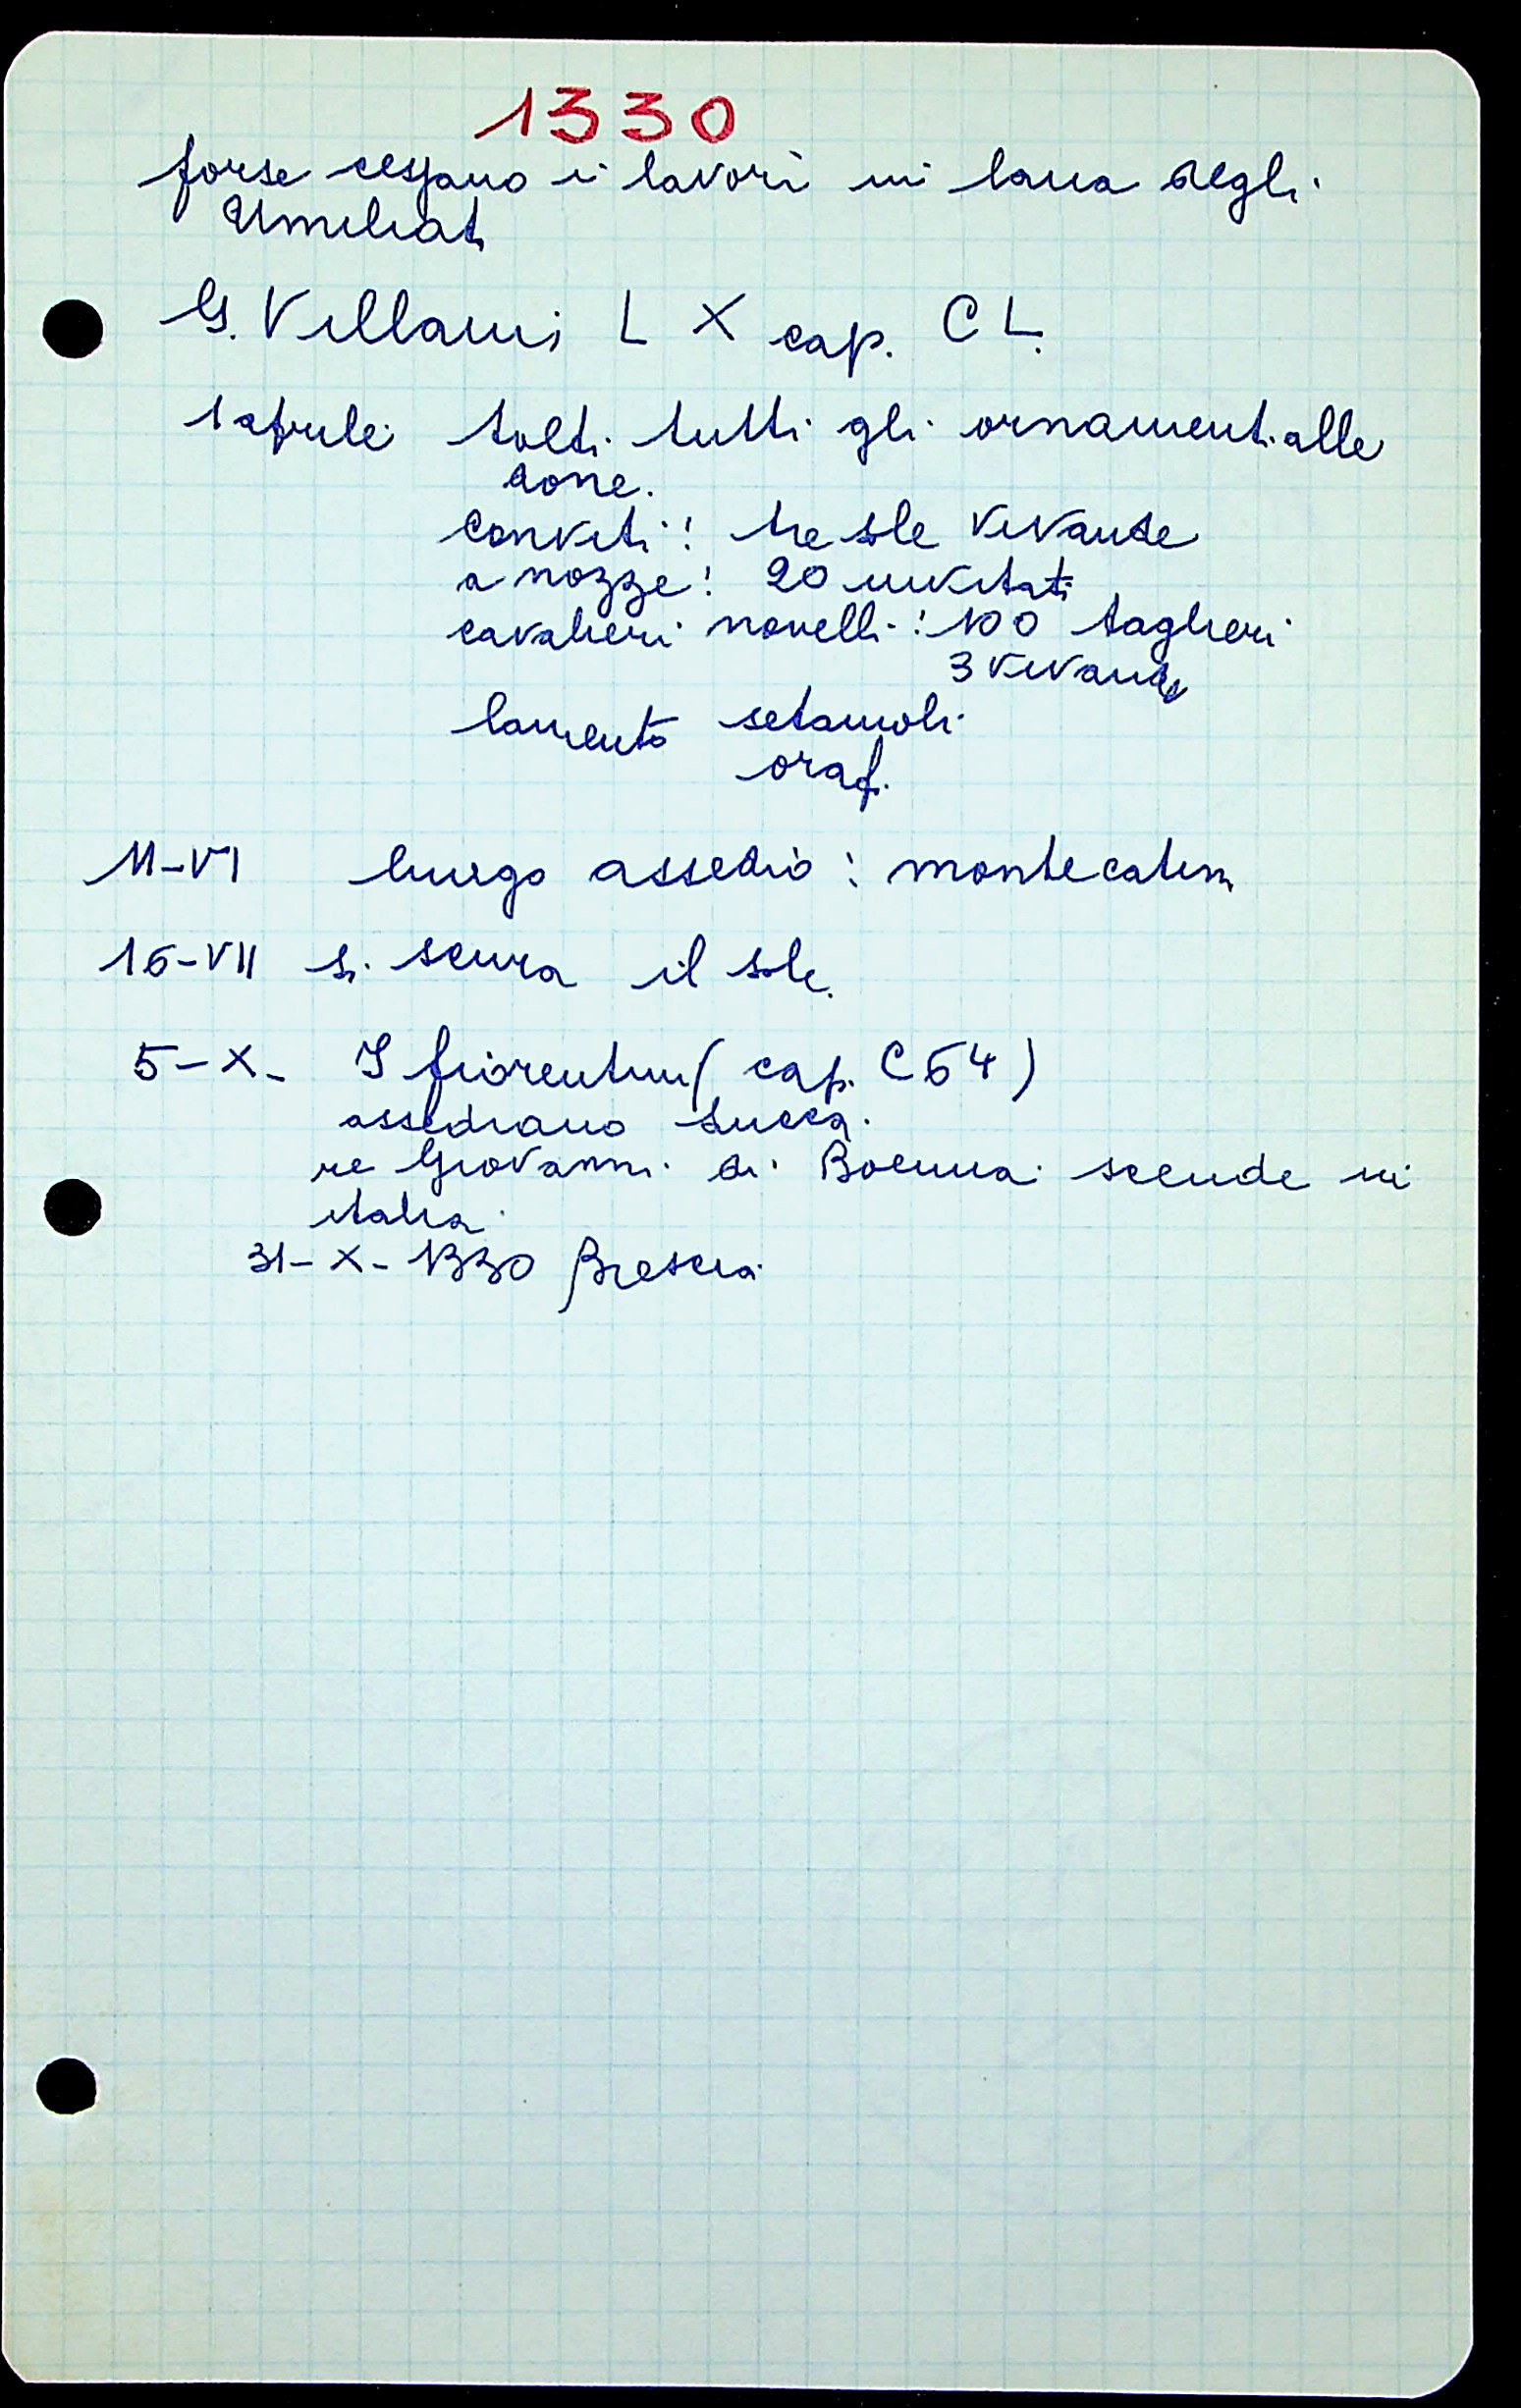 1330
forse cessano i lavori in lana degli
Umiliati
G. Villani L X cap. CL.
1 aprile tolti tutti gli ornamenti alle
done.
conviti: tre sole vivande
a nozze: 20 invitati
cavalieri novelli: 100 taglieri
3 vivande
lamento setaiuoli
orafi
11-VI lungo assedio: montecatini
16-VII si scura il sole.
5-X- I fiorentini (cap. C64)
assediano Lucca.
re Giovanni di Boemia scende in
italia.
31-X-1330 Brescia